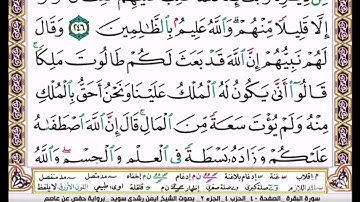 إِلَّا قَلِيلًا مِّنْهُمْ وَاللَّهُ عَلِيمٌۢ بِالظَّالِمِينَ ٢٤٦ وَقَالَ
لَهُمْ نَبِيُّهُمْ إِنَّ اللَّهَ قَدْ بَعَثَ لَكُمْ طَالُوتَ مَلِكًا
قَالُوا أَنَّىٰ يَكُونُ لَهُ الْمُلْكُ عَلَيْنَا وَنَحْنُ أَحَقُّ بِالْمُلْكِ
مِنْهُ وَلَمْ يُؤْتَ سَعَةً مِّنَ الْمَالِ قَالَ إِنَّ اللَّهَ اصْطَفَىٰهُ
عَلَيْكُمْ وَزَادَهُ بَسْطَةً فِي الْعِلْمِ وَالْجِسْمِ وَاللَّهُ
سورة البقرة - الصفحة ٤٠ - الجزء ٢ - بصوت الشيخ أيمن رشدي سويد - برواية حفص عن عاصم